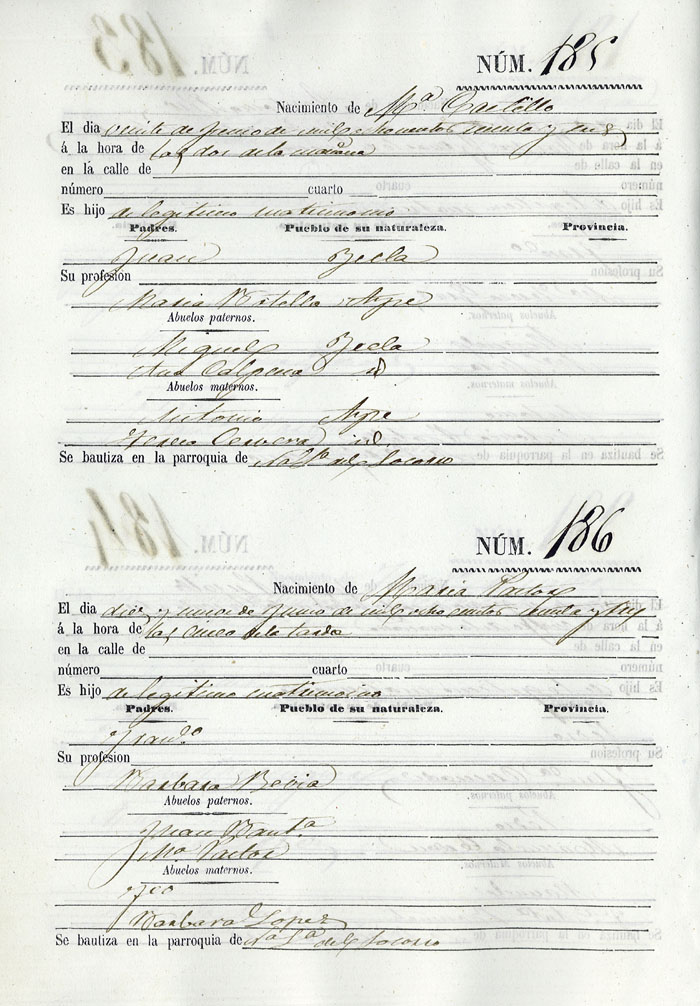 NÚM. 185
Nacimiento de Mª Castillo
El dia veinte de Junio de mil ochocientos y
á la hora de las dos de la mañana
en la calle de
número cuarto
Es hijo de legitimo matrimonio
Padres. Pueblo de su naturaleza. Provincia.
Juan Yecla
Su profesion
Maria Botella Aspe
Abuelos paternos.
Miguel Yecla
Ana Calpena id
Abuelos maternos.
Antonio Aspe
Teresa Cervera id
Se bautiza en la parroquia de Nª Sª del Socorro
NÚM. 186
Nacimiento de Maria Pastor
El dia diez y nueve de Junio de mil ochocientos y
á la hora de las cinco de la tarde
en la calle de
número cuarto
Es hijo de legitimo matrimonio
Padres. Pueblo de su naturaleza. Provincia.
Franº
Su profesion
Barbara Bevia
Abuelos paternos.
Juan Bautª
Mª Pastor
Abuelos maternos.
Barbara Lopez
Se bautiza en la parroquia de Nª Sª del Socorro